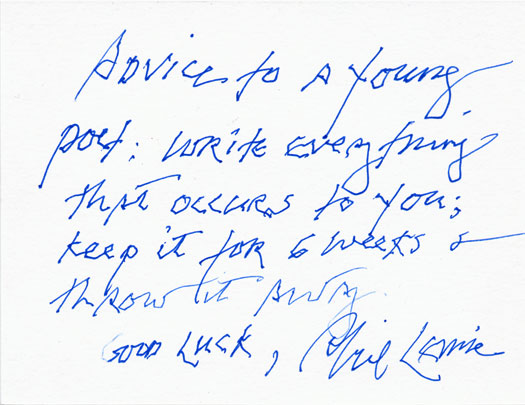 Advice to a young
poet: write everything
that occurs to you;
keep it for 6 weeks &
throw it away.
Good luck, Phil Levine